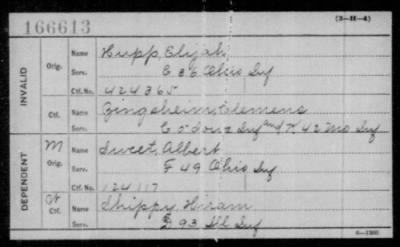 166613
(3-H-4)
INVALID
Orig.
Name Hupp, Elijah
Serv. C 36 Ohio Inf
Ctf. No. 424365
Ctf.
Name Zingsheim, Clemens
Serv. C 2 Inf and K 42 Mo Inf
DEPENDENT
M Orig.
Name Sweet, Albert
Serv. F 49 Ohio Inf
Ctf. No. 124117
Ctf.
Name Shippy, Hiram
Serv. 93 Ill Inf
6-1380